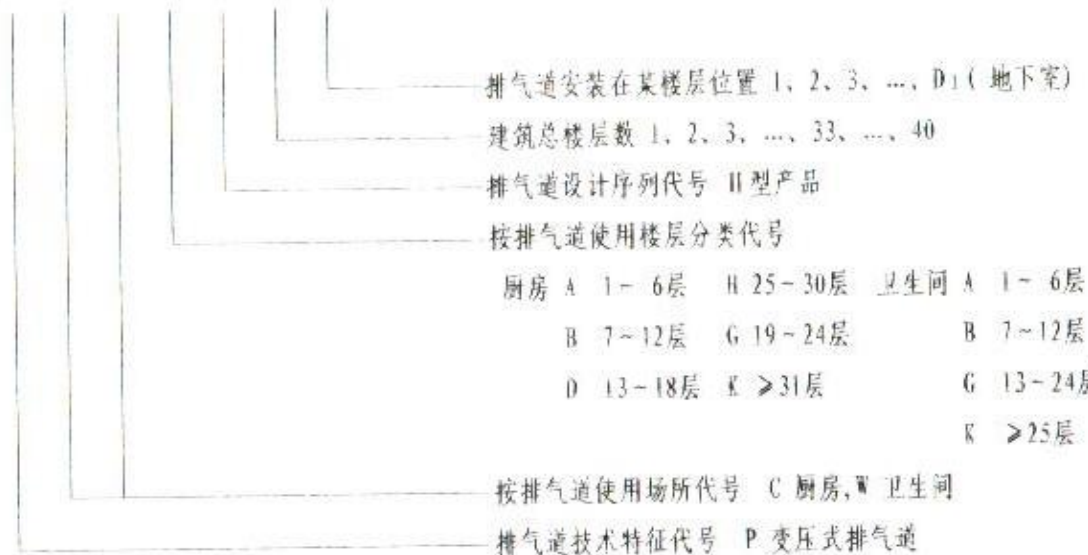 排气道安装在某楼层位置 1、2、3、…、D1(地下室)
建筑总楼层数 1、2、3、…、33、…、40
排气道设计序列代号 H型产品
按排气道使用楼层分类代号
厨房 A 1~6层 H 25~30层 卫生间 A 1~6层
B 7~12层 G 19~24层 B 7~12层
D 13~18层 K ≥31层 G 13~24层
K ≥25层
按排气道使用场所代号 C 厨房,W 卫生间
排气道技术特征代号 P 变压式排气道